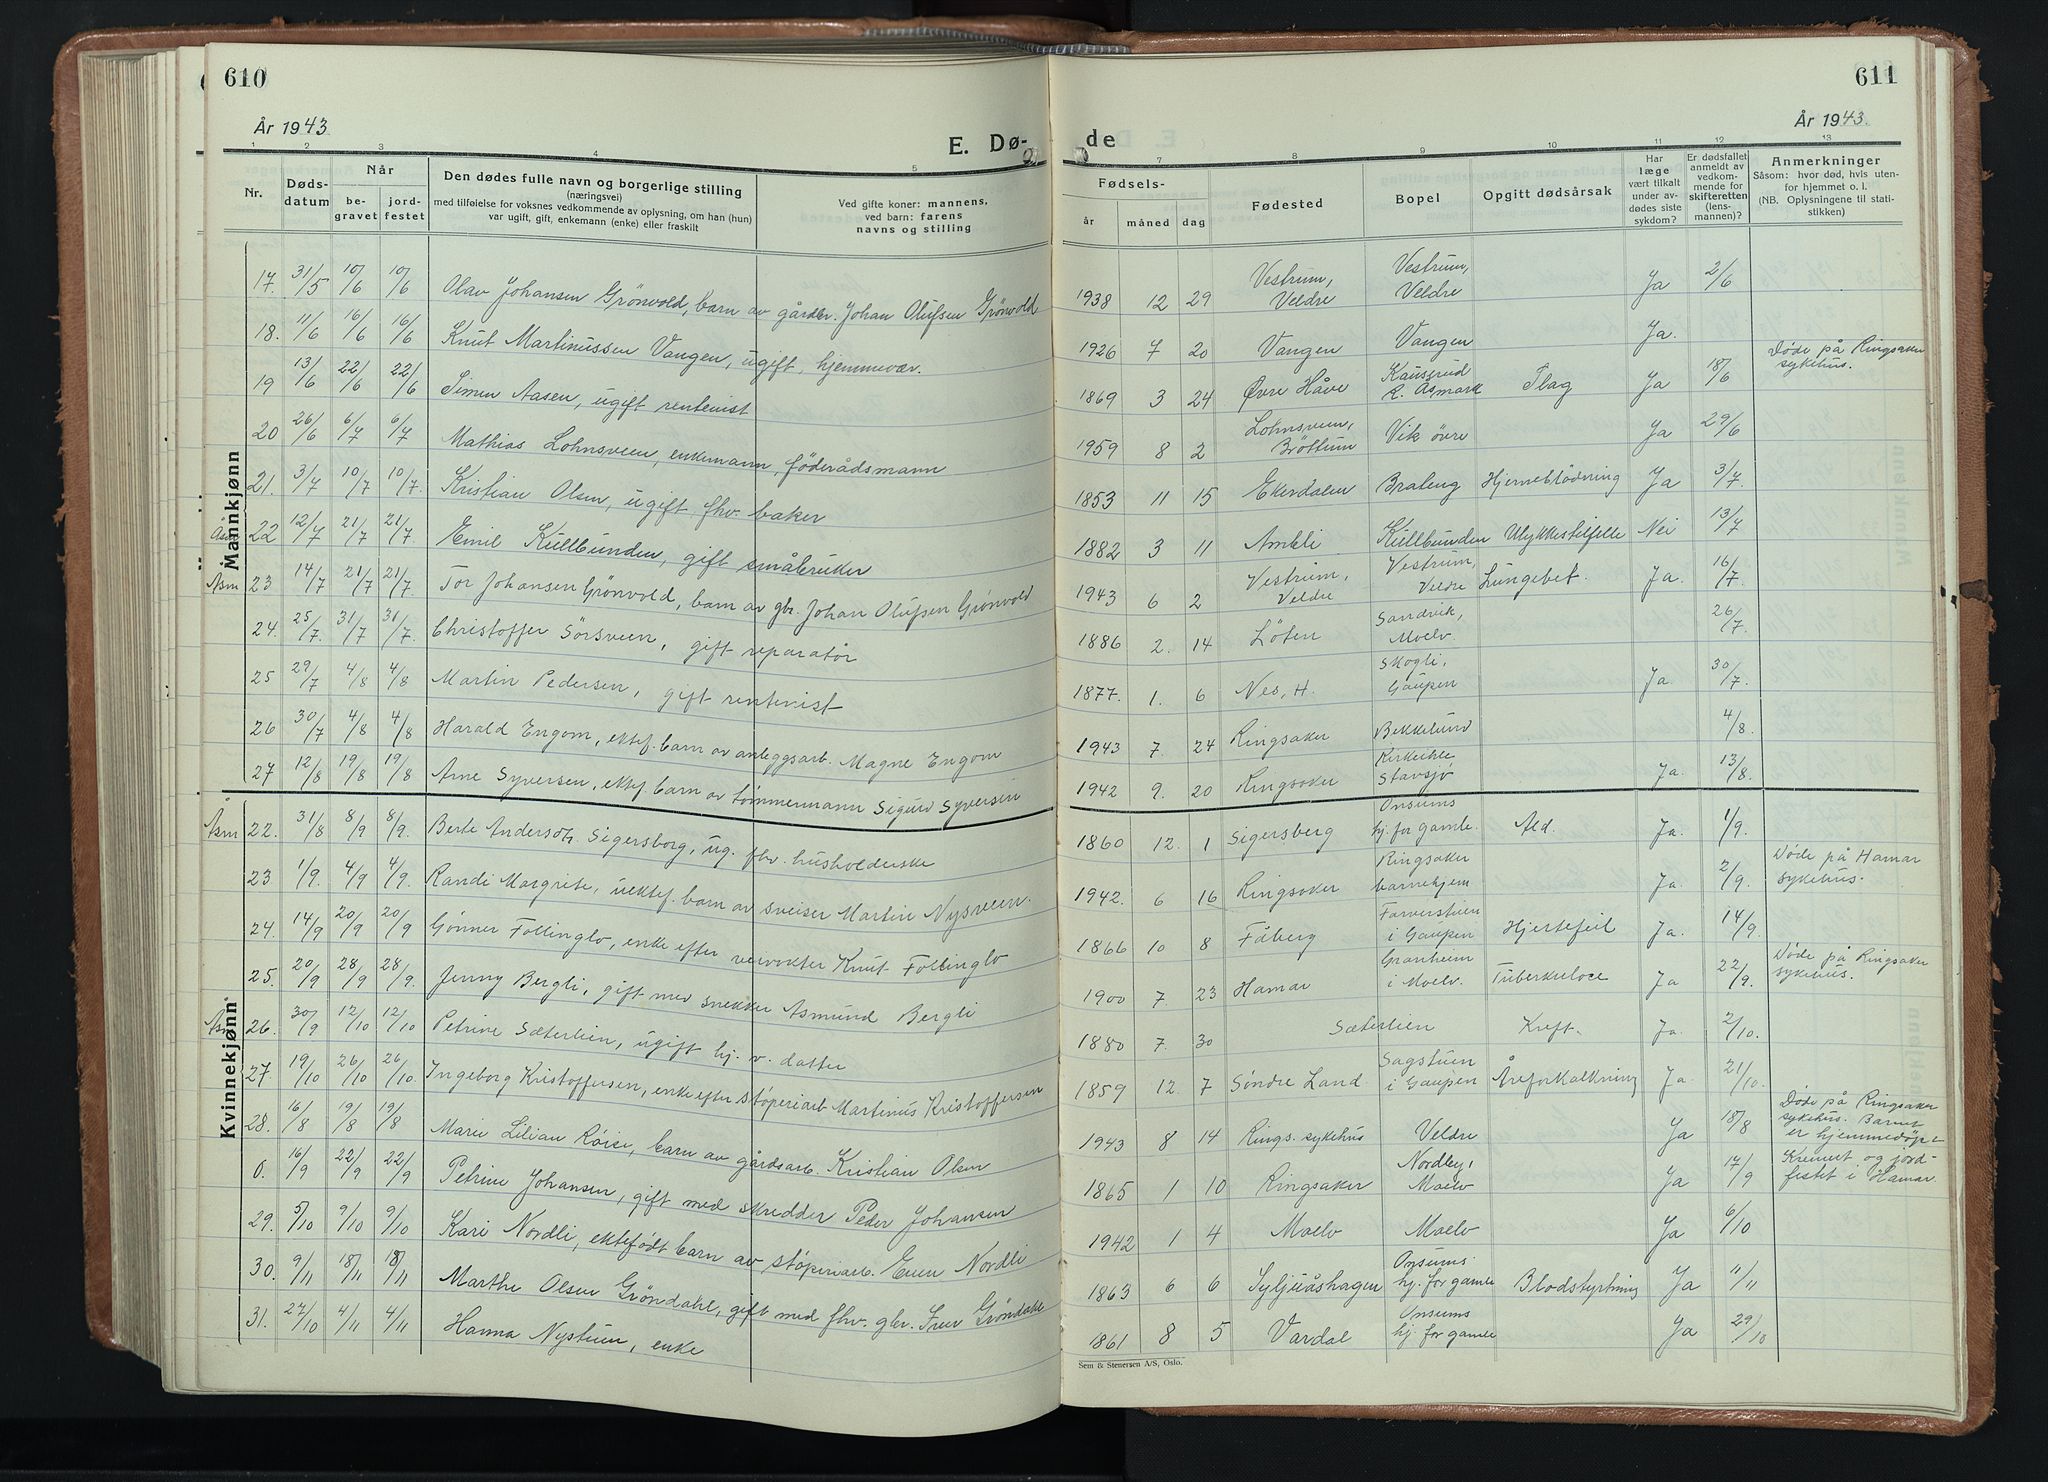 610
611
År 1943
År 1943.
E. Dø-
de
1 2 3 4 5
7 8 9 10 11 12 13
Nr.
Døds-
datum
Når
be-
gravet
jord-
festet
Den dødes fulle navn og borgerlige stilling
(næringsvei)
med tilføielse for voksnes vedkommende av oplysning, om han (hun)
var ugift, gift, enkemann (enke) eller fraskilt
Ved gifte koner: mannens,
ved barn: farens
navns og stilling
Fødsels-
år måned dag
Fødested
Bopel
Opgitt dødsårsak
Har
læge
vært tilkalt
under av-
dødes siste
sykdom?
Er dødsfallet
anmeldt av
vedkom-
mende for
skifteretten
(lens-
mannen)?
Anmerkninger
Såsom: hvor død, hvis uten-
for hjemmet o. l.
(NB. Oplysningene til stati-
stikken)
Mannkjønn
17. 31/5 10/6 10/6 Olav Johansen Grönvold, barn av gårdbr. Johan Olufsen Grönvold 1938 12 29 Vestrum, Veldre Vestrum, Veldre Ja 2/6
18. 11/6 16/6 16/6 Knut Martinussen Vangen, ugift, hjemmevær. 1926 7 20 Vangen Vangen Ja.
19 13/6 22/6 22/6 Simen Aasen, ugift rentenist 1869 3 24 Øvre Håve R. Asmark Slag Ja 18/6 Døde på Ringsaker sykehus.
20 26/6 6/7 6/7 Mathias Lohnsveen, enkemann, föderådsmann 1959 8 2 Lohnsveen, Bröttum Vik övre Ja 29/6
21. 3/7 10/7 10/7. Kristian Olsen, ugift fhv. baker 1853 11 15 Ekerdalen Brateng Hjerneblödning Ja 3/7.
22 12/7 21/7 21/7 Emil Küllbunden, gift småbruker 1882 3 11 Ambli Küllbunden Ulykkestilfelle Nei 13/7
Asm 23 14/7 21/7 21/7. Tor Johansen Grönvold, barn av gbr. Johan Olufsen Grönvold 1943 6 2 Vestrum, Veldre Vestrum, Veldre Lungebet. Ja. 16/7.
24. 25/7. 31/7 31/7. Christoffer Sörsveen, gift reparatør 1886 2. 14 Löten Sandvik, Moelv. 26/7.
25 29/7 4/8 4/8 Martin Pedersen, gift rentenist 1877. 1. 6 Nes, H. Skogli, Gaupen Ja. 30/7.
26 30/7 4/8 4/8 Harald Engom, ektef. barn av anleggsarb. Magne Engom 1943 7. 24 Ringsaker Bekkelund 4/8.
27 12/8 19/8 19/8 Arne Syversen, ektef. barn av tömmermann Sigurd Syversen 1942 9. 20 Ringsaker Stavsjø Ja. 13/8.
Kvinnekjønn
Asm 22. 31/8 8/9 8/9. Berte Andersdtr. Sigersborg, ug. fhv. husholderske 1860 12. 1 Sigersberg Onsums hj. for gamle. Ald. Ja. 1/9.
23. 1/9. 4/9 4/9. Randi Margrite, uektef. barn av sveiser Martin Nysveen. 1942. 6 16 Ringsaker Ringsaker barnehjem Ja. 2/9. Døde på Hamar sykehus.
24. 14/9 20/9 20/9 Gönner Follinglo, enke efter veivokter Knut Follinglo 1866 10 8 Fåberg Farverstuen i Gaupen Hjertefeil Ja. 14/9.
25. 20/9 28/9 28/9. Jenny Bergli, gift med snekker Asmund Bergli 1900 7. 23 Hamar Granheim i Moelv. Tuberkulose Ja 22/9. Døde på Ringsaker sykehus.
Asm 26. 30/9 12/10 12/10 Petrine Sæterlien, ugift hj. v. datter 1880 7. 30 Sæterlien Kreft. Ja. 2/10.
27. 19/10 26/10 26/10. Ingeborg Kristoffersen, enke efter støperiarb Martinus Kristoffersen 1859 12. 7 Söndre Land. Sagstuen i Gaupen Åreforkalkning Ja. 21/10.
28. 16/8 19/8 19/8 Marie Lilian Røise, barn av gårdsarb. Kristian Olsen 1943 8 14 Rings. sykehus Veldre Ja 18/8 Døde på Ringsaker sykehus. Barnet er hjemmedöpt
0. 16/9 22/9 22/9 Petrine Johansen, gift med skredder Peder Johansen 1865 1 10 Ringsaker Nordby, Moelv Ja 17/9 Kremert og jord-festet i Hamar.
29. 5/10 9/10 9/10 Kari Nordli, ektefødt barn av støperiarb. Even Nordli 1942 1 4 Moelv Moelv Ja 6/10
30. 9/11 18/11 18/11 Marthe Olsen Gröndahl, gift med fhv. gbr. Iver Gröndahl 1863 6 6 Syljuåshagen Onsums hj. for gamle Blodstyrtning Ja 11/11
31. 27/10 4/11 4/11 Hanna Nystuen, enke 1861 8 5 Vardal Onsums hj. for gamle Ja 29/10
Sem & Stenersen A/S, Oslo.